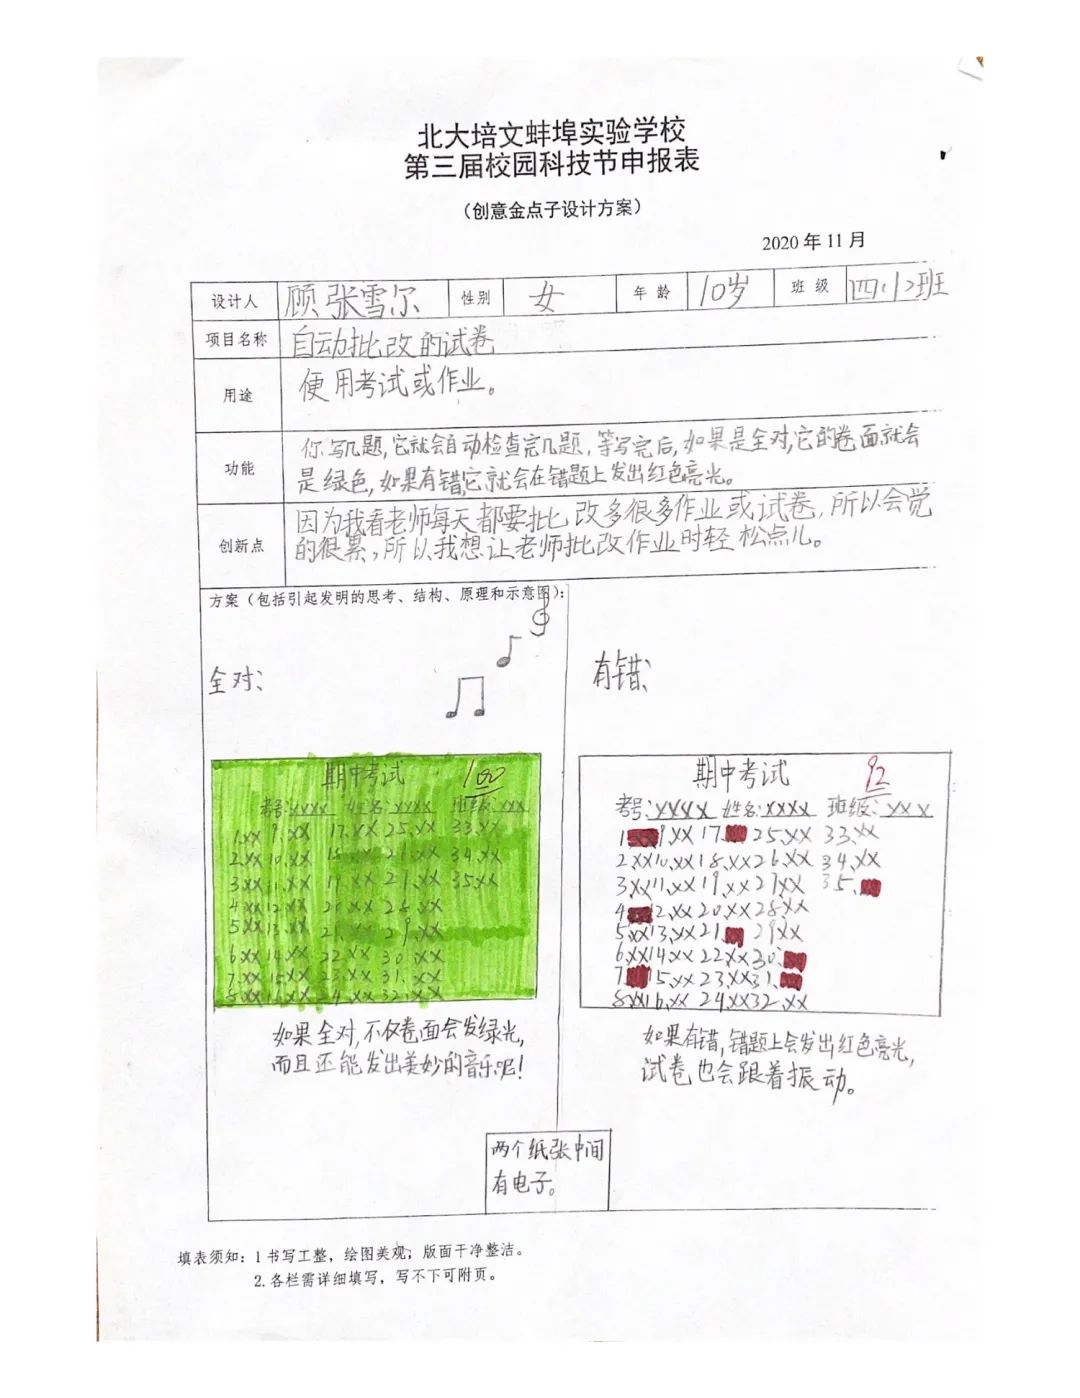 北大培文蚌埠实验学校
第三届校园科技节申报表
（创意金点子设计方案）
2020年11月
设计人 顾张雪尔 性别 女 年龄 10岁 班级 四.12班
项目名称 自动批改的试卷
用途 便用考试或作业。
功能 你写几题,它就会自动检查完几题,等写完后,如果是全对,它的卷面就会
是绿色,如果有错,它就会在错题上发出红色亮光。
创新点 因为我看老师每天都要批改多很多作业或试卷,所以会觉
的很累,所以我想让老师批改作业时轻松点儿。
方案（包括引起发明的思考、结构、原理和示意图）：
全对:
期中考试 100
考号:xxxx 姓名:xxxx 班级:xxx
1.xx 9.xx 17.xx 25.xx 33.xx
2.xx 10.xx 18.xx 26.xx 34.xx
3.xx 11.xx 19.xx 27.xx 35.xx
4.xx 12.xx 20.xx 28.xx
5.xx 13.xx 21.xx 29.xx
6.xx 14.xx 22.xx 30.xx
7.xx 15.xx 23.xx 31.xx
8.xx 16.xx 24.xx 32.xx
如果全对,不仅卷面会发绿光,
而且还能发出美妙的音乐呢!
有错:
期中考试 92
考号:xxxx 姓名:xxxx 班级:xxx
1. 9.xx 17. 25.xx 33.xx
2.xx 10.xx 18.xx 26.xx 34.xx
3.xx 11.xx 19.xx 27.xx 35.
4. 12.xx 20.xx 28.xx
5.xx 13.xx 21. 29.xx
6.xx 14.xx 22.xx 30.
7. 15.xx 23.xx 31.
8.xx 16.xx 24.xx 32.xx
如果有错,错题上会发出红色亮光,
试卷也会跟着振动。
两个纸张中间
有电子。
填表须知：1 书写工整，绘图美观；版面干净整洁。
2.各栏需详细填写，写不下可附页。